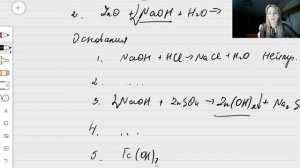 2. ZnO + NaOH + H₂O →
Основания
1. NaOH + HCl → NaCl + H₂O Нейтр.
2. ....
3. 2NaOH + ZnSO₄ → Zn(OH)₂↓ + Na₂S
4. ...
5. Fe(OH)₂